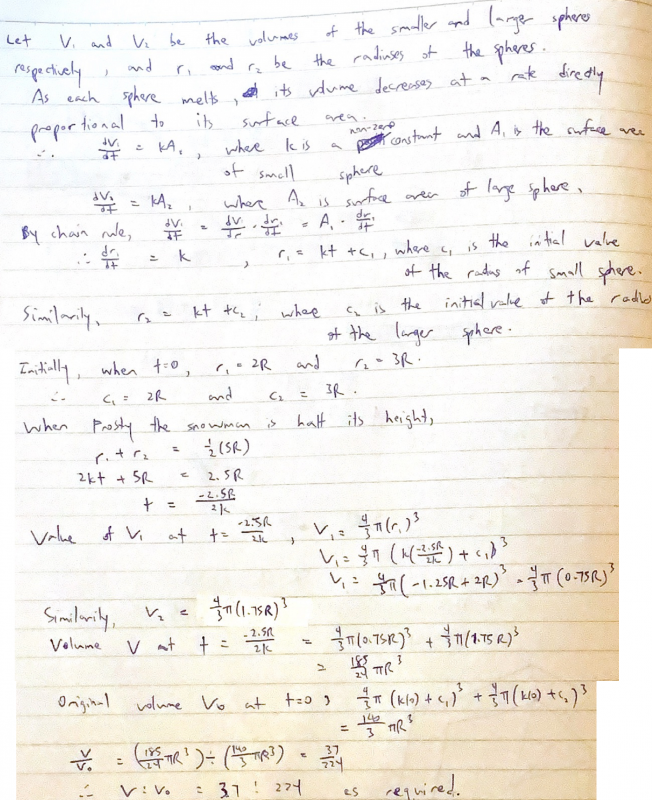 Let V₁ and V₂ be the volumes of the smaller and larger spheres
respectively, and r₁ and r₂ be the radiuses of the spheres.
As each sphere melts, its volume decreases at a rate directly
proportional to its surface area.
∴ dV₁/dt = kA₁, where k is a non-zero constant and A₁ is the surface area
of small sphere
dV₂/dt = kA₂, where A₂ is surface area of large sphere.
By chain rule, dV₁/dt = dV₁/dr · dr₁/dt = A₁ · dr₁/dt
∴ dr₁/dt = k, r₁ = kt + c₁, where c₁ is the initial value
of the radus of small sphere.
Similarily, r₂ = kt + c₂; where c₂ is the initial value of the radius
of the larger sphere.
Initially, when t=0, r₁ = 2R and r₂ = 3R.
∴ c₁ = 2R and c₂ = 3R.
When Frosty the snowman is half its height,
r₁ + r₂ = ½(5R)
2kt + 5R = 2.5R
t = -2.5R/2k
Value of V₁ at t = -2.5R/2k, V₁ = 4/3 π(r₁)³
V₁ = 4/3 π (k(-2.5R/2k) + c₁)³
V₁ = 4/3 π(-1.25R + 2R)³ = 4/3 π (0.75R)³
Similarily, V₂ = 4/3 π(1.75R)³
Volume V at t = -2.5R/2k = 4/3 π(0.75R)³ + 4/3 π(1.75R)³
= 185/24 πR³
Original volume V₀ at t=0, 4/3 π (k(0) + c₁)³ + 4/3 π(k(0) + c₂)³
= 140/3 πR³
V/V₀ = (185/24 πR³) ÷ (140/3 πR³) = 37/224
∴ V : V₀ = 37 : 224 as required.